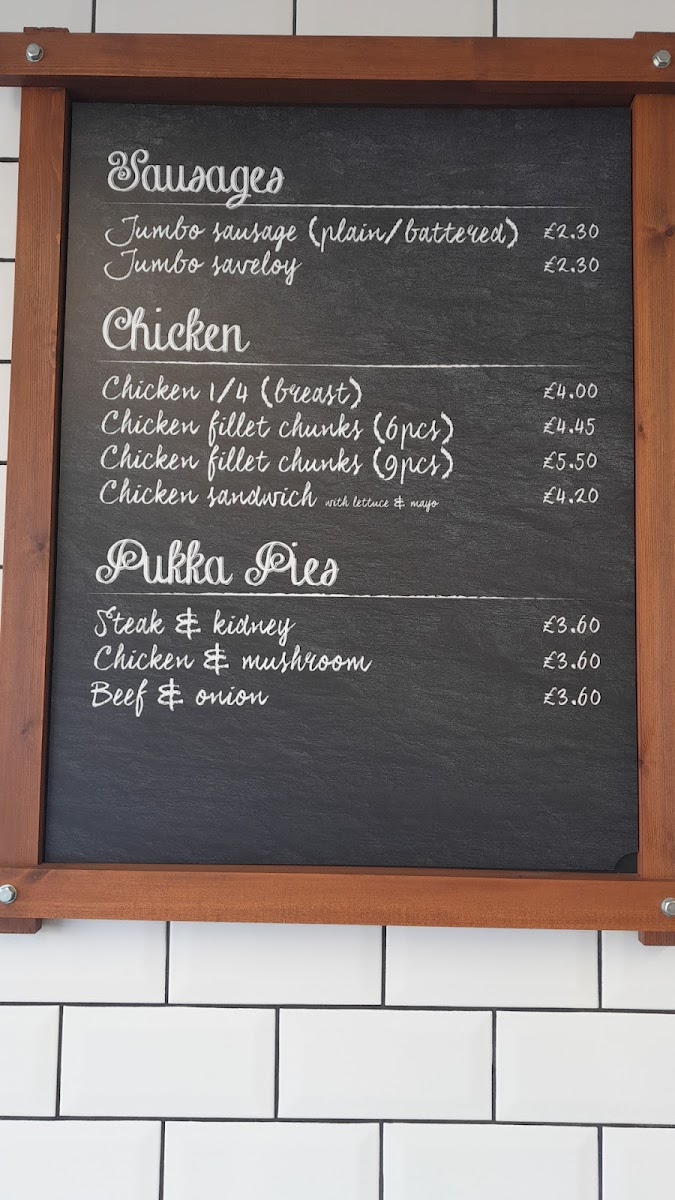 Sausages
Jumbo sausage (plain/battered) £2.30
Jumbo saveloy £2.30
Chicken
Chicken 1/4 (breast) £4.00
Chicken fillet chunks (6pcs) £4.45
Chicken fillet chunks (9pcs) £5.50
Chicken sandwich with lettuce & mayo £4.20
Pukka Pies
Steak & kidney £3.60
Chicken & mushroom £3.60
Beef & onion £3.60